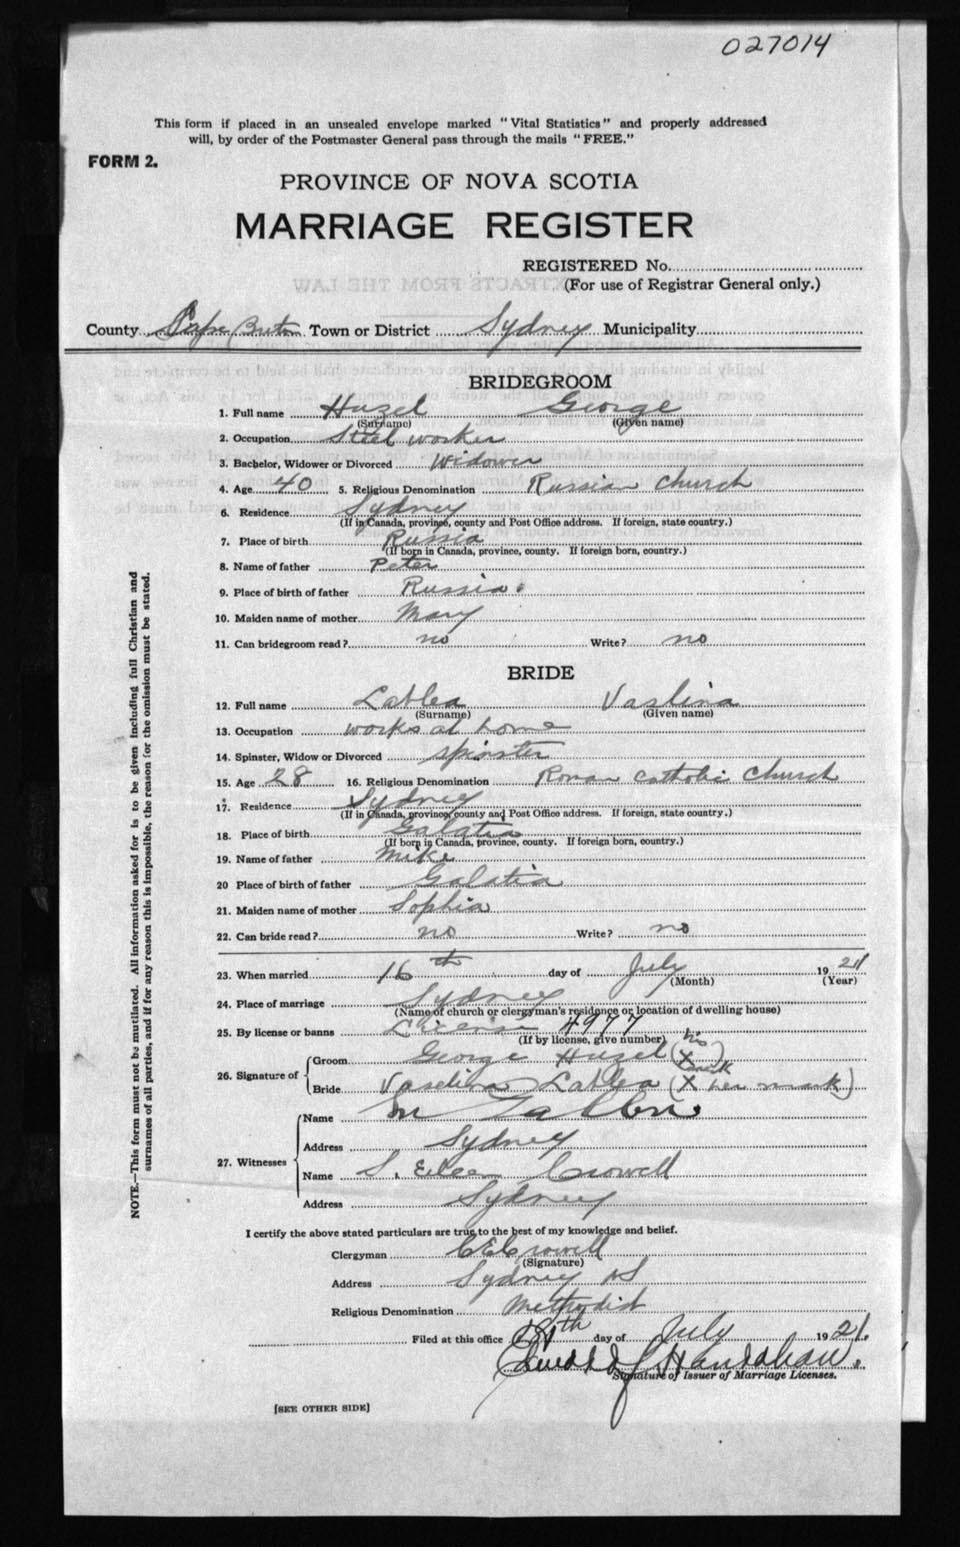 027014
This form if placed in an unsealed envelope marked "Vital Statistics" and properly addressed
will, by order of the Postmaster General pass through the mails "FREE."
FORM 2.
PROVINCE OF NOVA SCOTIA
MARRIAGE REGISTER
REGISTERED No.
(For use of Registrar General only.)
County Cape Breton Town or District Sydney Municipality
BRIDEGROOM
1. Full name Huzel George
(Surname) (Given name)
2. Occupation Steel worker
3. Bachelor, Widower or Divorced Widower
4. Age 40 5. Religious Denomination Russian Church
6. Residence Sydney
(If in Canada, province, county and Post Office address. If foreign, state country.)
7. Place of birth Russia
(If born in Canada, province, county. If foreign born, country.)
8. Name of father Peter
9. Place of birth of father Russia
10. Maiden name of mother Mary
11. Can bridegroom read? no Write? no
BRIDE
12. Full name Lablea Vaslina
(Surname) (Given name)
13. Occupation works at home
14. Spinster, Widow or Divorced spinster
15. Age 28 16. Religious Denomination Roman Catholic Church
17. Residence Sydney
(If in Canada, province, county and Post Office address. If foreign, state country.)
18. Place of birth Galatia
(If born in Canada, province, county. If foreign born, country.)
19. Name of father Mike
20 Place of birth of father Galatia
21. Maiden name of mother Sophia
22. Can bride read? no Write? no
23. When married 16th day of July 1921
(Month) (Year)
24. Place of marriage Sydney
(Name of church or clergyman's residence or location of dwelling house)
25. By license or banns License 4977
(If by license, give number)
26. Signature of
Groom George Huzel (his X mark)
Bride Vaselina Lablea (X her mark)
27. Witnesses
Name M
Address Sydney
Name S. Eileen Crowell
Address Sydney
I certify the above stated particulars are true to the best of my knowledge and belief.
Clergyman C E Crowell
(Signature)
Address Sydney NS
Religious Denomination Methodist
Filed at this office day of July 1921.
Edward J Hanrahan.
Signature of Issuer of Marriage Licenses.
[SEE OTHER SIDE]
NOTE.—This form must not be mutilated. All information asked for is to be given including full Christian and
surnames of all parties, and if for any reason this is impossible, the reason for the omission must be stated.